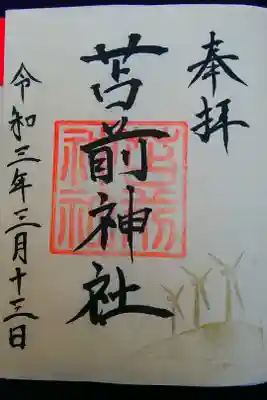 奉拝
苫前神社
令和三年三月十三日
苫前
神社